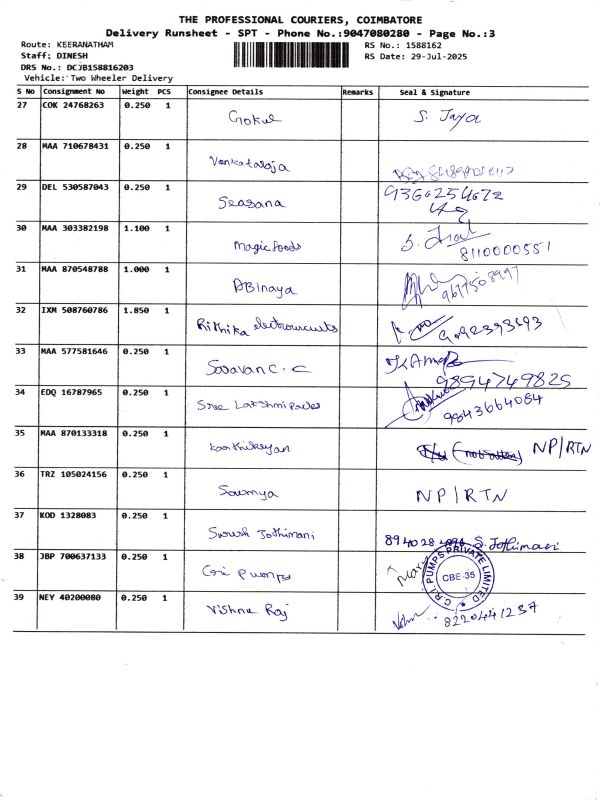 THE PROFESSIONAL COURIERS, COIMBATORE
Delivery Runsheet - SPT - Phone No.:9047080280 - Page No.:3
Route: KEERANATHAM RS No.: 1588162
Staff: DINESH RS Date: 29-Jul-2025
DRS No.: DCJB158816203
Vehicle: Two Wheeler Delivery
S No Consignment No Weight PCS Consignee Details Remarks Seal & Signature
27 COK 24768263 0.250 1
Gokul S. Jaya
28 MAA 710678431 0.250 1
Venkataraja
29 DEL 530587043 0.250 1 9360254672
Seasana
30 MAA 303382198 1.100 1
Magic foods 8110000551
31 MAA 870548788 1.000 1
ABInaya 9677508997
32 IXM 508760786 1.850 1
Rithika
33 MAA 577581646 0.250 1
Saravan C. C 9894749825
34 EDQ 16787965 0.250 1
Sree Lakshmi Packs 9843664084
35 MAA 870133318 0.250 1
Karthikeyan NP/RTN
36 TRZ 105024156 0.250 1
Sowmya NP/RTN
37 KOD 1328083 0.250 1
Jothimani S. Jothimani
38 JBP 700637133 0.250 1
Cri pumps C.R.I. PUMPS PRIVATE LIMITED CBE-35
39 NEY 40200080 0.250 1
Vishnu Raj 8220441237